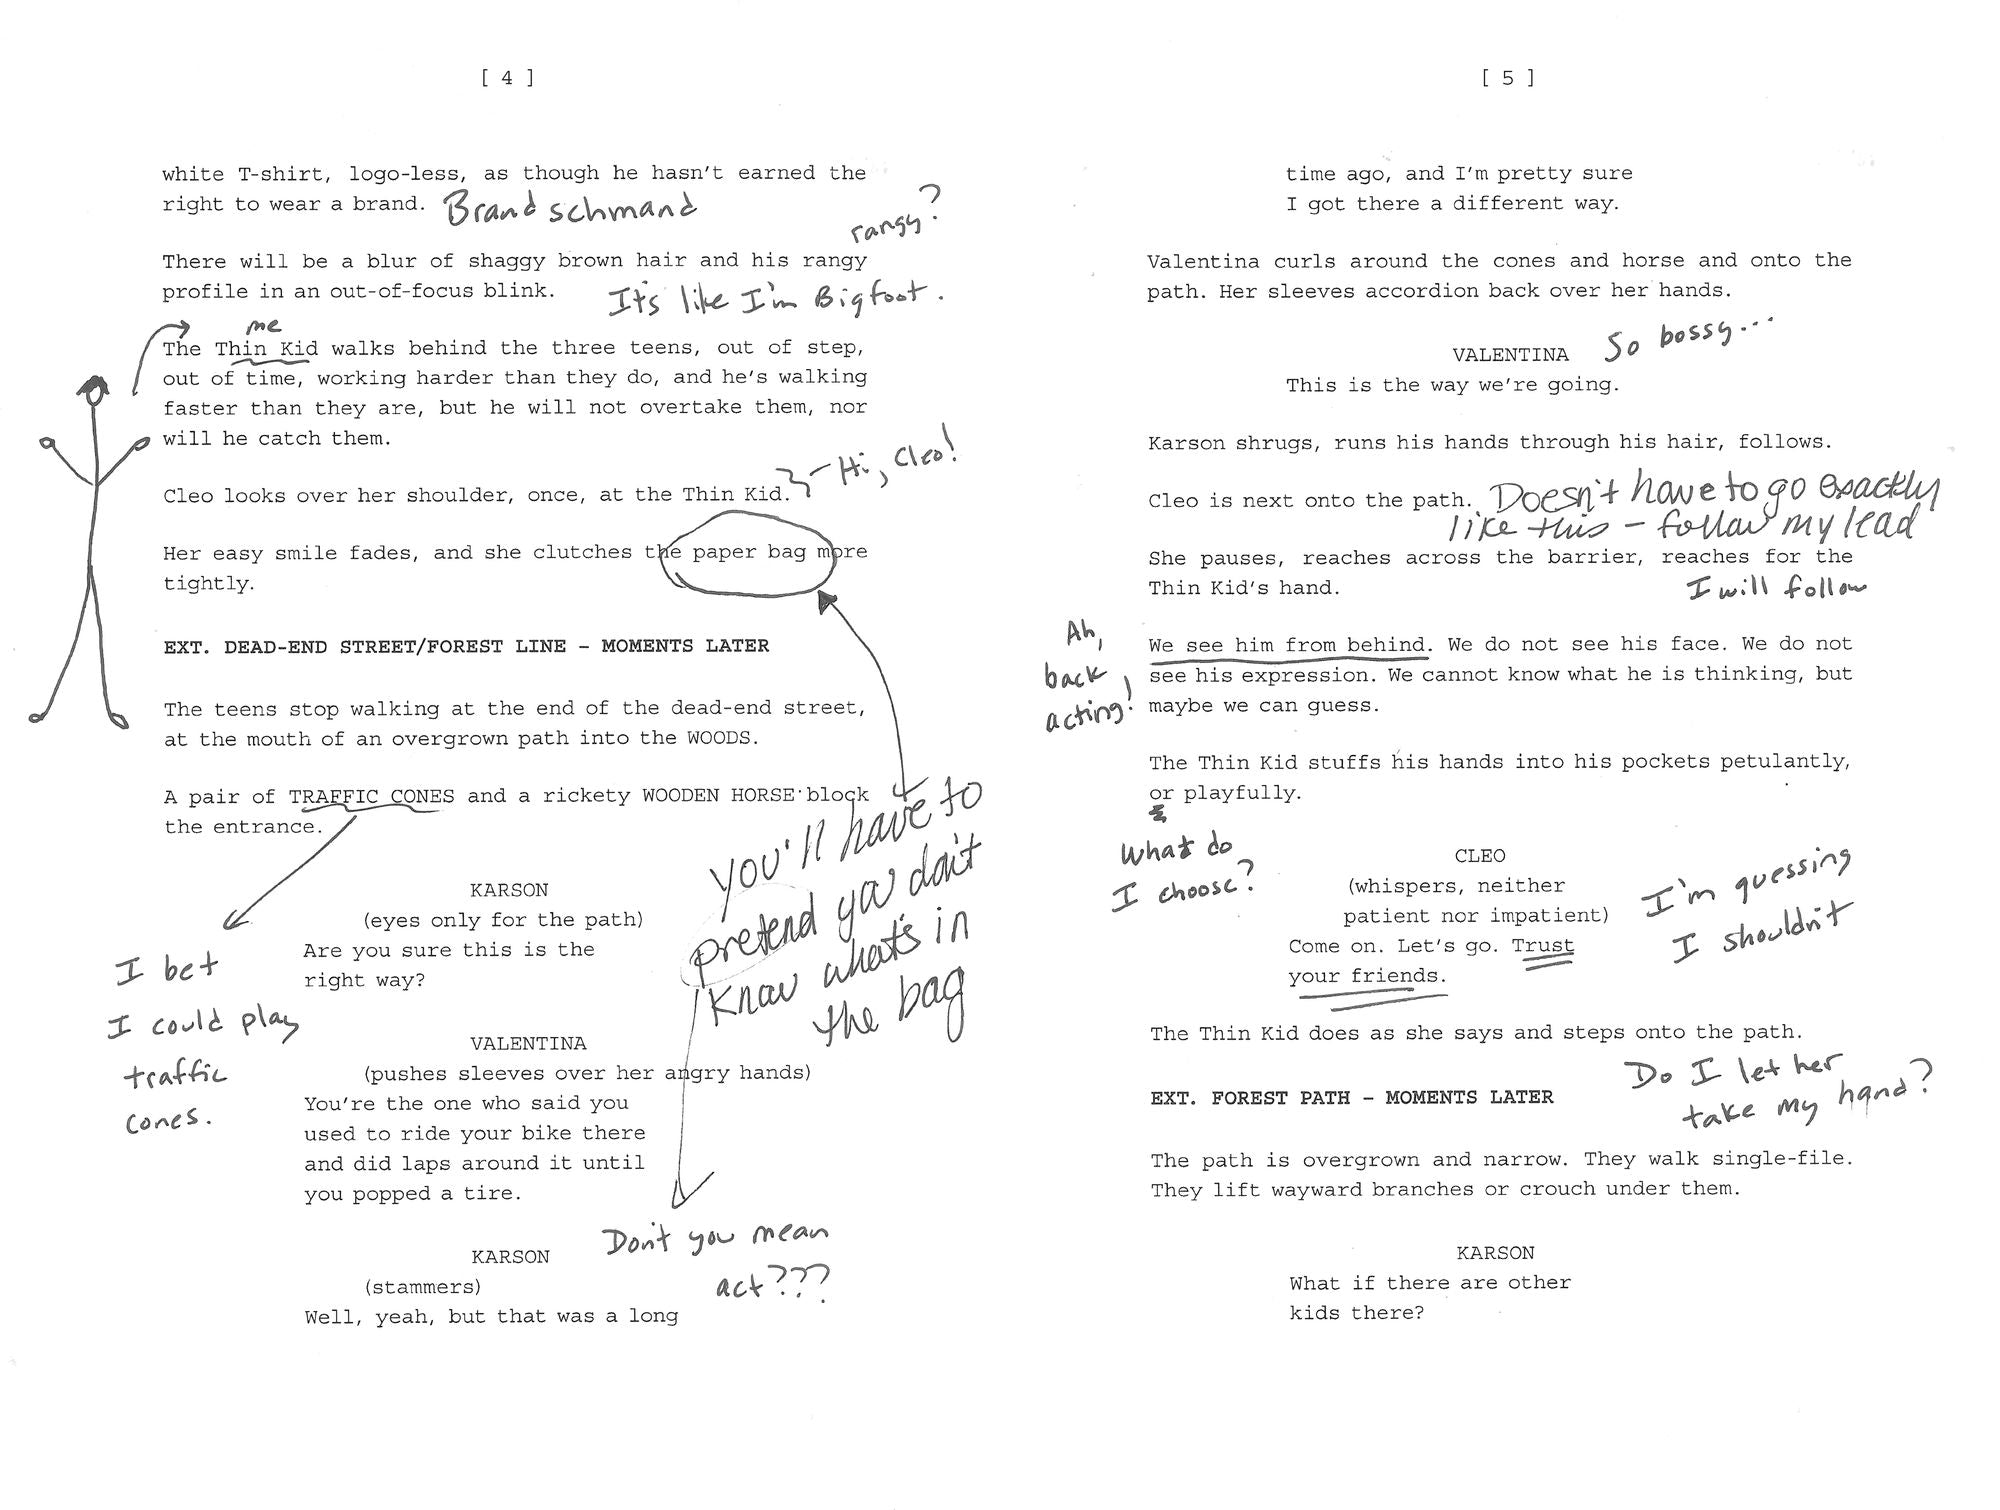 [ 4 ]
white T-shirt, logo-less, as though he hasn't earned the
right to wear a brand. Brand schmand
rangy?
There will be a blur of shaggy brown hair and his rangy
profile in an out-of-focus blink. It's like I'm Bigfoot.
me
The Thin Kid walks behind the three teens, out of step,
out of time, working harder than they do, and he's walking
faster than they are, but he will not overtake them, nor
will he catch them.
Hi, Cleo!
Cleo looks over her shoulder, once, at the Thin Kid.
Her easy smile fades, and she clutches the paper bag more
tightly.
EXT. DEAD-END STREET/FOREST LINE – MOMENTS LATER
The teens stop walking at the end of the dead-end street,
at the mouth of an overgrown path into the WOODS.
A pair of TRAFFIC CONES and a rickety WOODEN HORSE block
the entrance.
you'll have to
pretend you don't
know what's in
the bag
KARSON
(eyes only for the path)
Are you sure this is the
right way?
I bet
I could play
traffic
cones.
VALENTINA
(pushes sleeves over her angry hands)
You're the one who said you
used to ride your bike there
and did laps around it until
you popped a tire.
Don't you mean
act???
KARSON
(stammers)
Well, yeah, but that was a long
[ 5 ]
time ago, and I'm pretty sure
I got there a different way.
Valentina curls around the cones and horse and onto the
path. Her sleeves accordion back over her hands.
So bossy...
VALENTINA
This is the way we're going.
Karson shrugs, runs his hands through his hair, follows.
Cleo is next onto the path. Doesn't have to go exactly
like this – follow my lead
She pauses, reaches across the barrier, reaches for the
Thin Kid's hand. I will follow
Ah,
back
acting!
We see him from behind. We do not see his face. We do not
see his expression. We cannot know what he is thinking, but
maybe we can guess.
The Thin Kid stuffs his hands into his pockets petulantly,
or playfully.
What do
I choose?
CLEO
(whispers, neither
patient nor impatient)
Come on. Let's go. Trust
your friends.
I'm guessing
I shouldn't
The Thin Kid does as she says and steps onto the path.
Do I let her
take my hand?
EXT. FOREST PATH – MOMENTS LATER
The path is overgrown and narrow. They walk single-file.
They lift wayward branches or crouch under them.
KARSON
What if there are other
kids there?